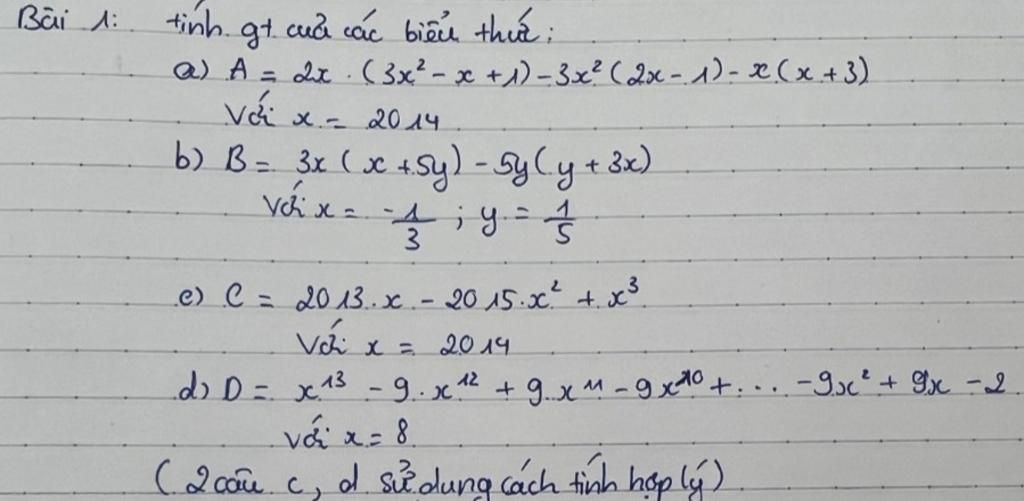 Bài 1: tính gt cuả các biểu thức:
a) A = 2x . (3x² - x + 1) - 3x² (2x - 1) - x (x + 3)
Với x = 2014
b) B = 3x (x + 5y) - 5y (y + 3x)
Với x = -1/3 ; y = 1/5
c) C = 2013.x - 2015.x² + x³
Với x = 2014
d) D = x¹³ - 9.x¹² + 9.x¹¹ - 9x¹⁰ + ... - 9x² + 9x - 2
với x = 8
(2 câu c, d sử dụng cách tính hợp lý)